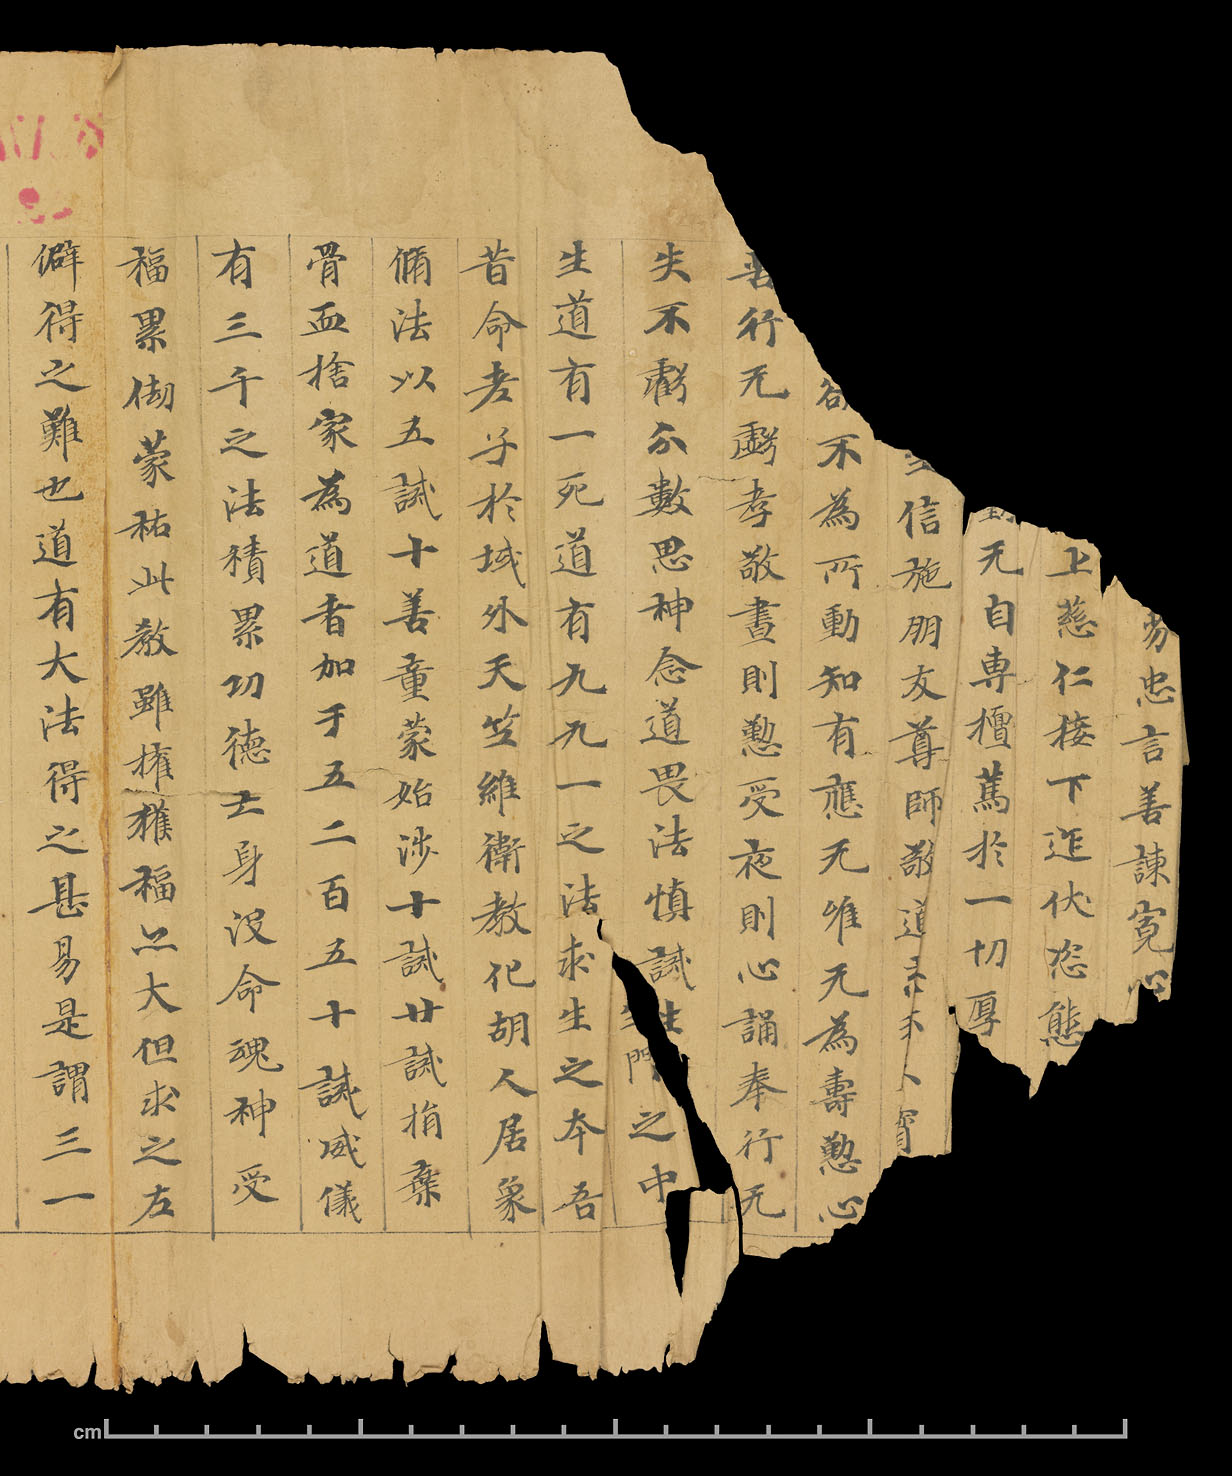 忠言善諫寬心
上慈仁接下迮伏恣態
无自専擅篤於一切厚
信施朋友尊師敬道
欲不為所動知有應无唯无為壽懃心
善行无虧孝敬晝則懃受夜則心誦奉行无
失不虧分數思神念道畏法慎誡生門之中
生道有一死道有九九一之法求生之本吾
昔命老子於域外天竺維衛教化胡人居象
俻法以五誡十善童蒙始涉十誡廿誡捐棄
骨血捨家為道者加于五二百五十誡威儀
有三千之法積累功德亡身沒命魂神受
福累劫蒙祐此教雖擁獲福亦大但求之左
僻得之難也道有大法得之甚易是謂三一